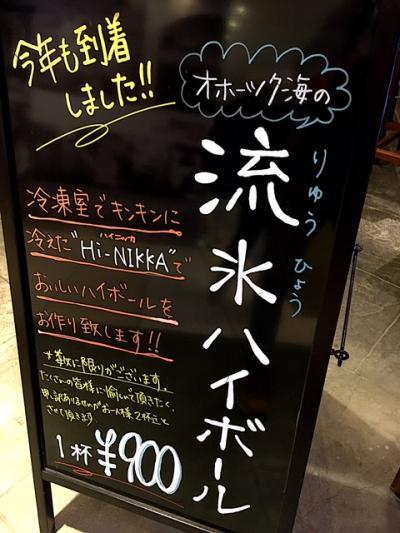 今年も到着
しました!!
オホーツク海の
流氷ハイボール
りゅう ひょう
冷凍室でキンキンに
ハイニッカ
冷えた"Hi-NIKKA"で
おいしいハイボールを
お作り致します!!
*数に限りがございます。
たくさんの皆様に愉しんで頂きたく、
申し訳ありませんがお一人様2杯迄と
させて頂きます
1杯¥900